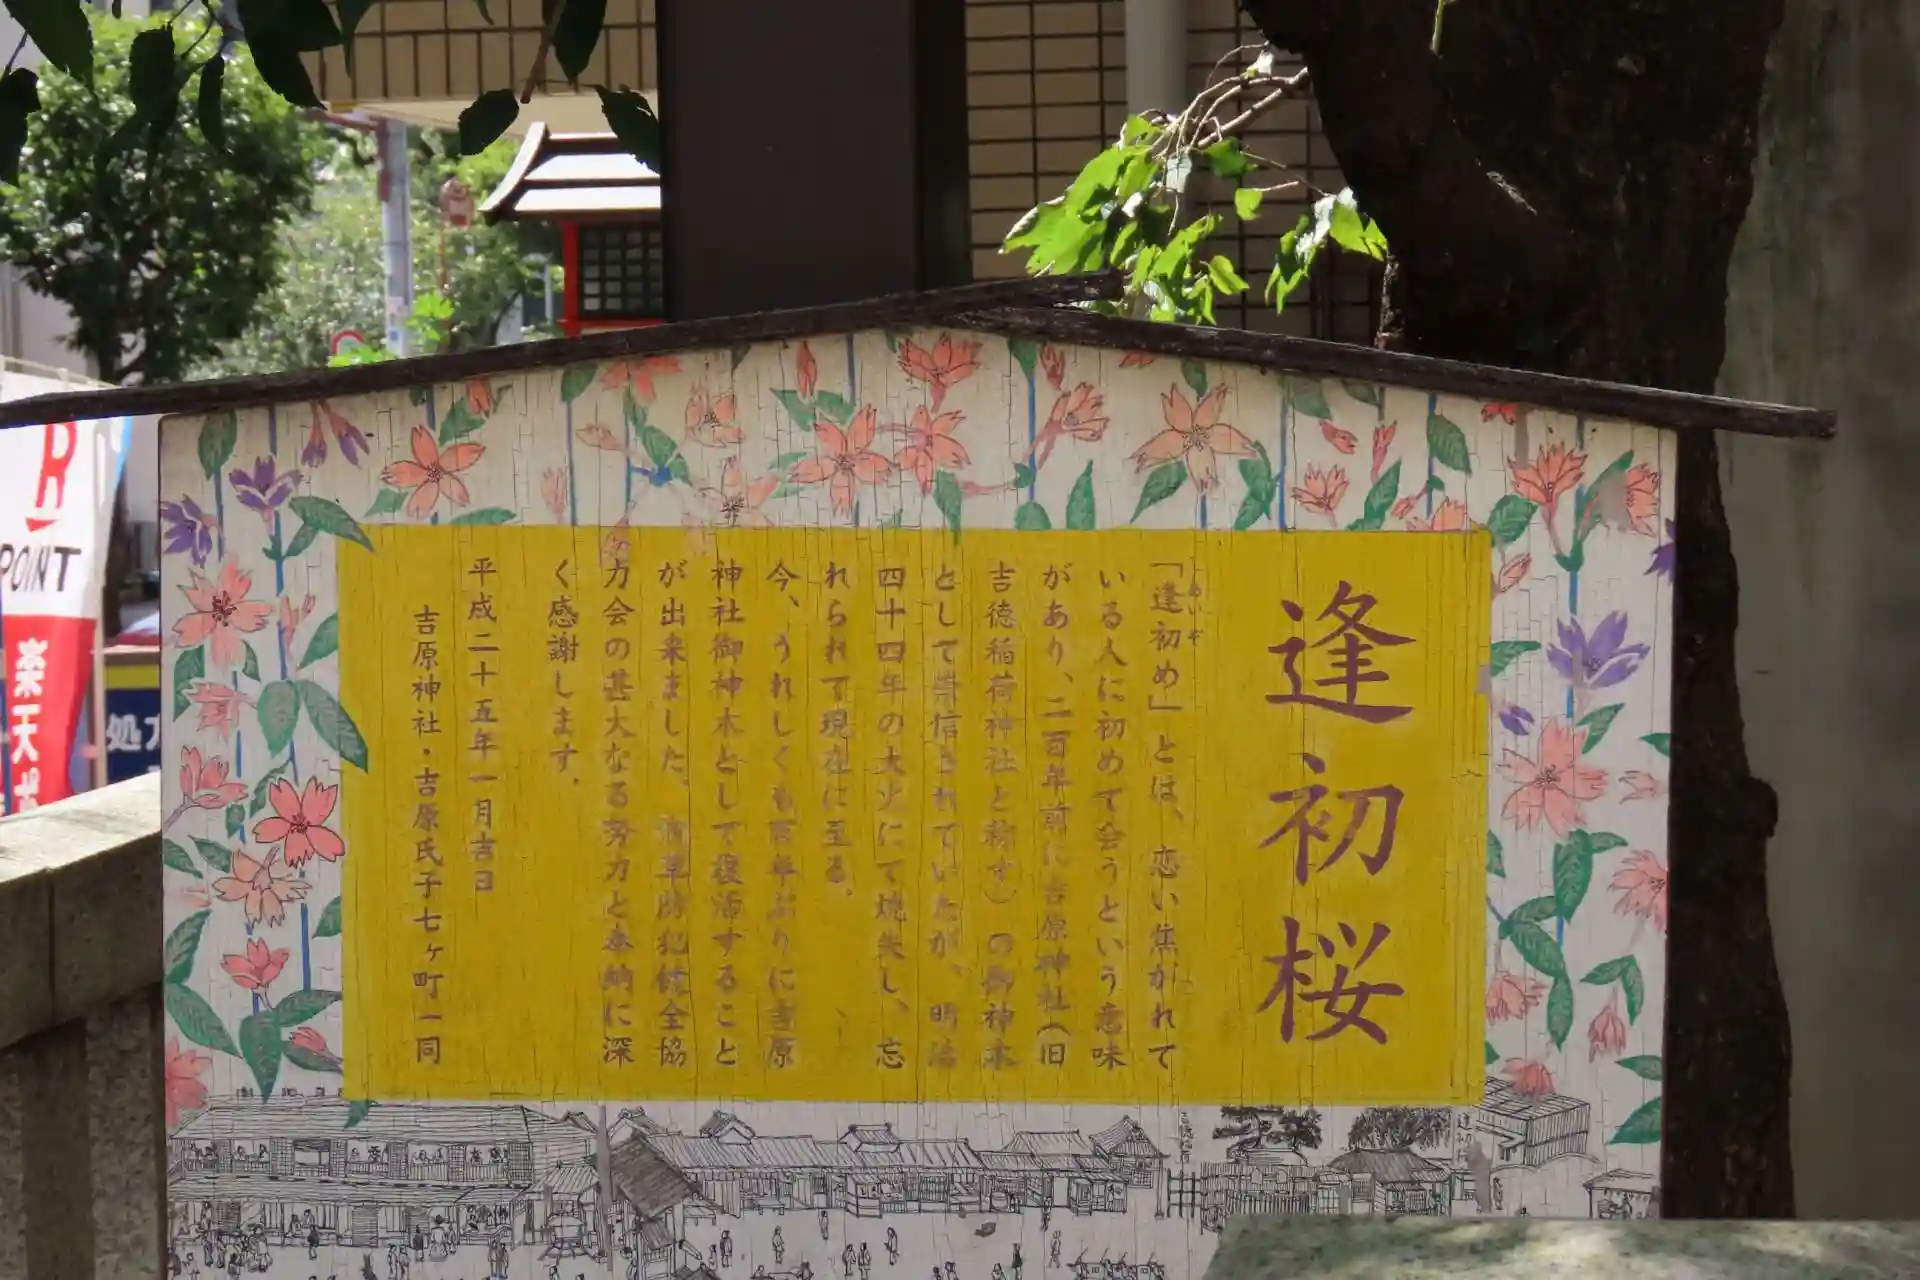 逢初桜
「逢初め」とは、恋い焦がれて
いる人に初めて会うという意味
があり、二百年前に吉原神社(旧
吉徳稲荷神社と称す)の御神木
として崇信されていたが、明治
四十四年の大火にて焼失し、忘
れられて現在に至る。
今、うれしくも百年ぶりに吉原
神社御神木として復活すること
が出来ました。浅草防犯健全協
力会の甚大なる努力と奉納に深
く感謝します。
平成二十五年一月吉日
吉原神社・吉原氏子七ヶ町一同
R
POINT
楽天ポ
処方